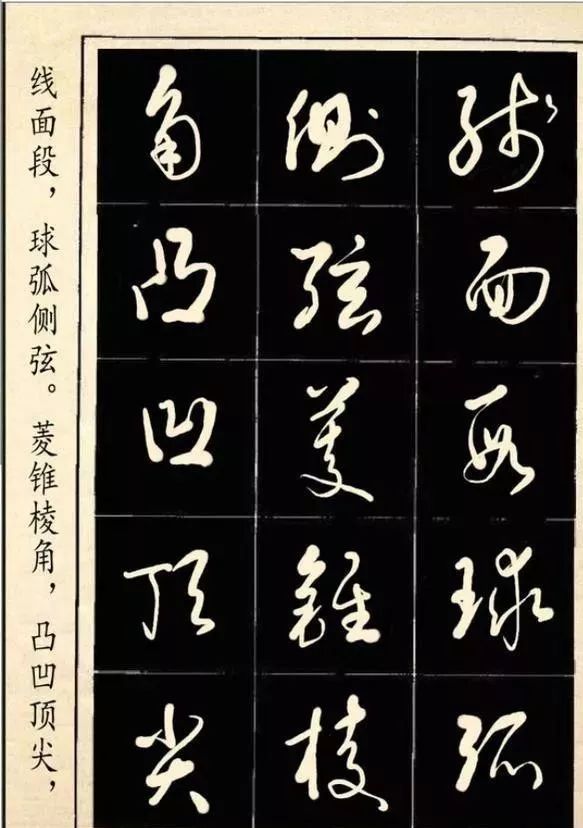 线面段，球弧侧弦。菱锥棱角，凸凹顶尖，
线面段球弧
侧弦菱锥棱
角凸凹顶尖